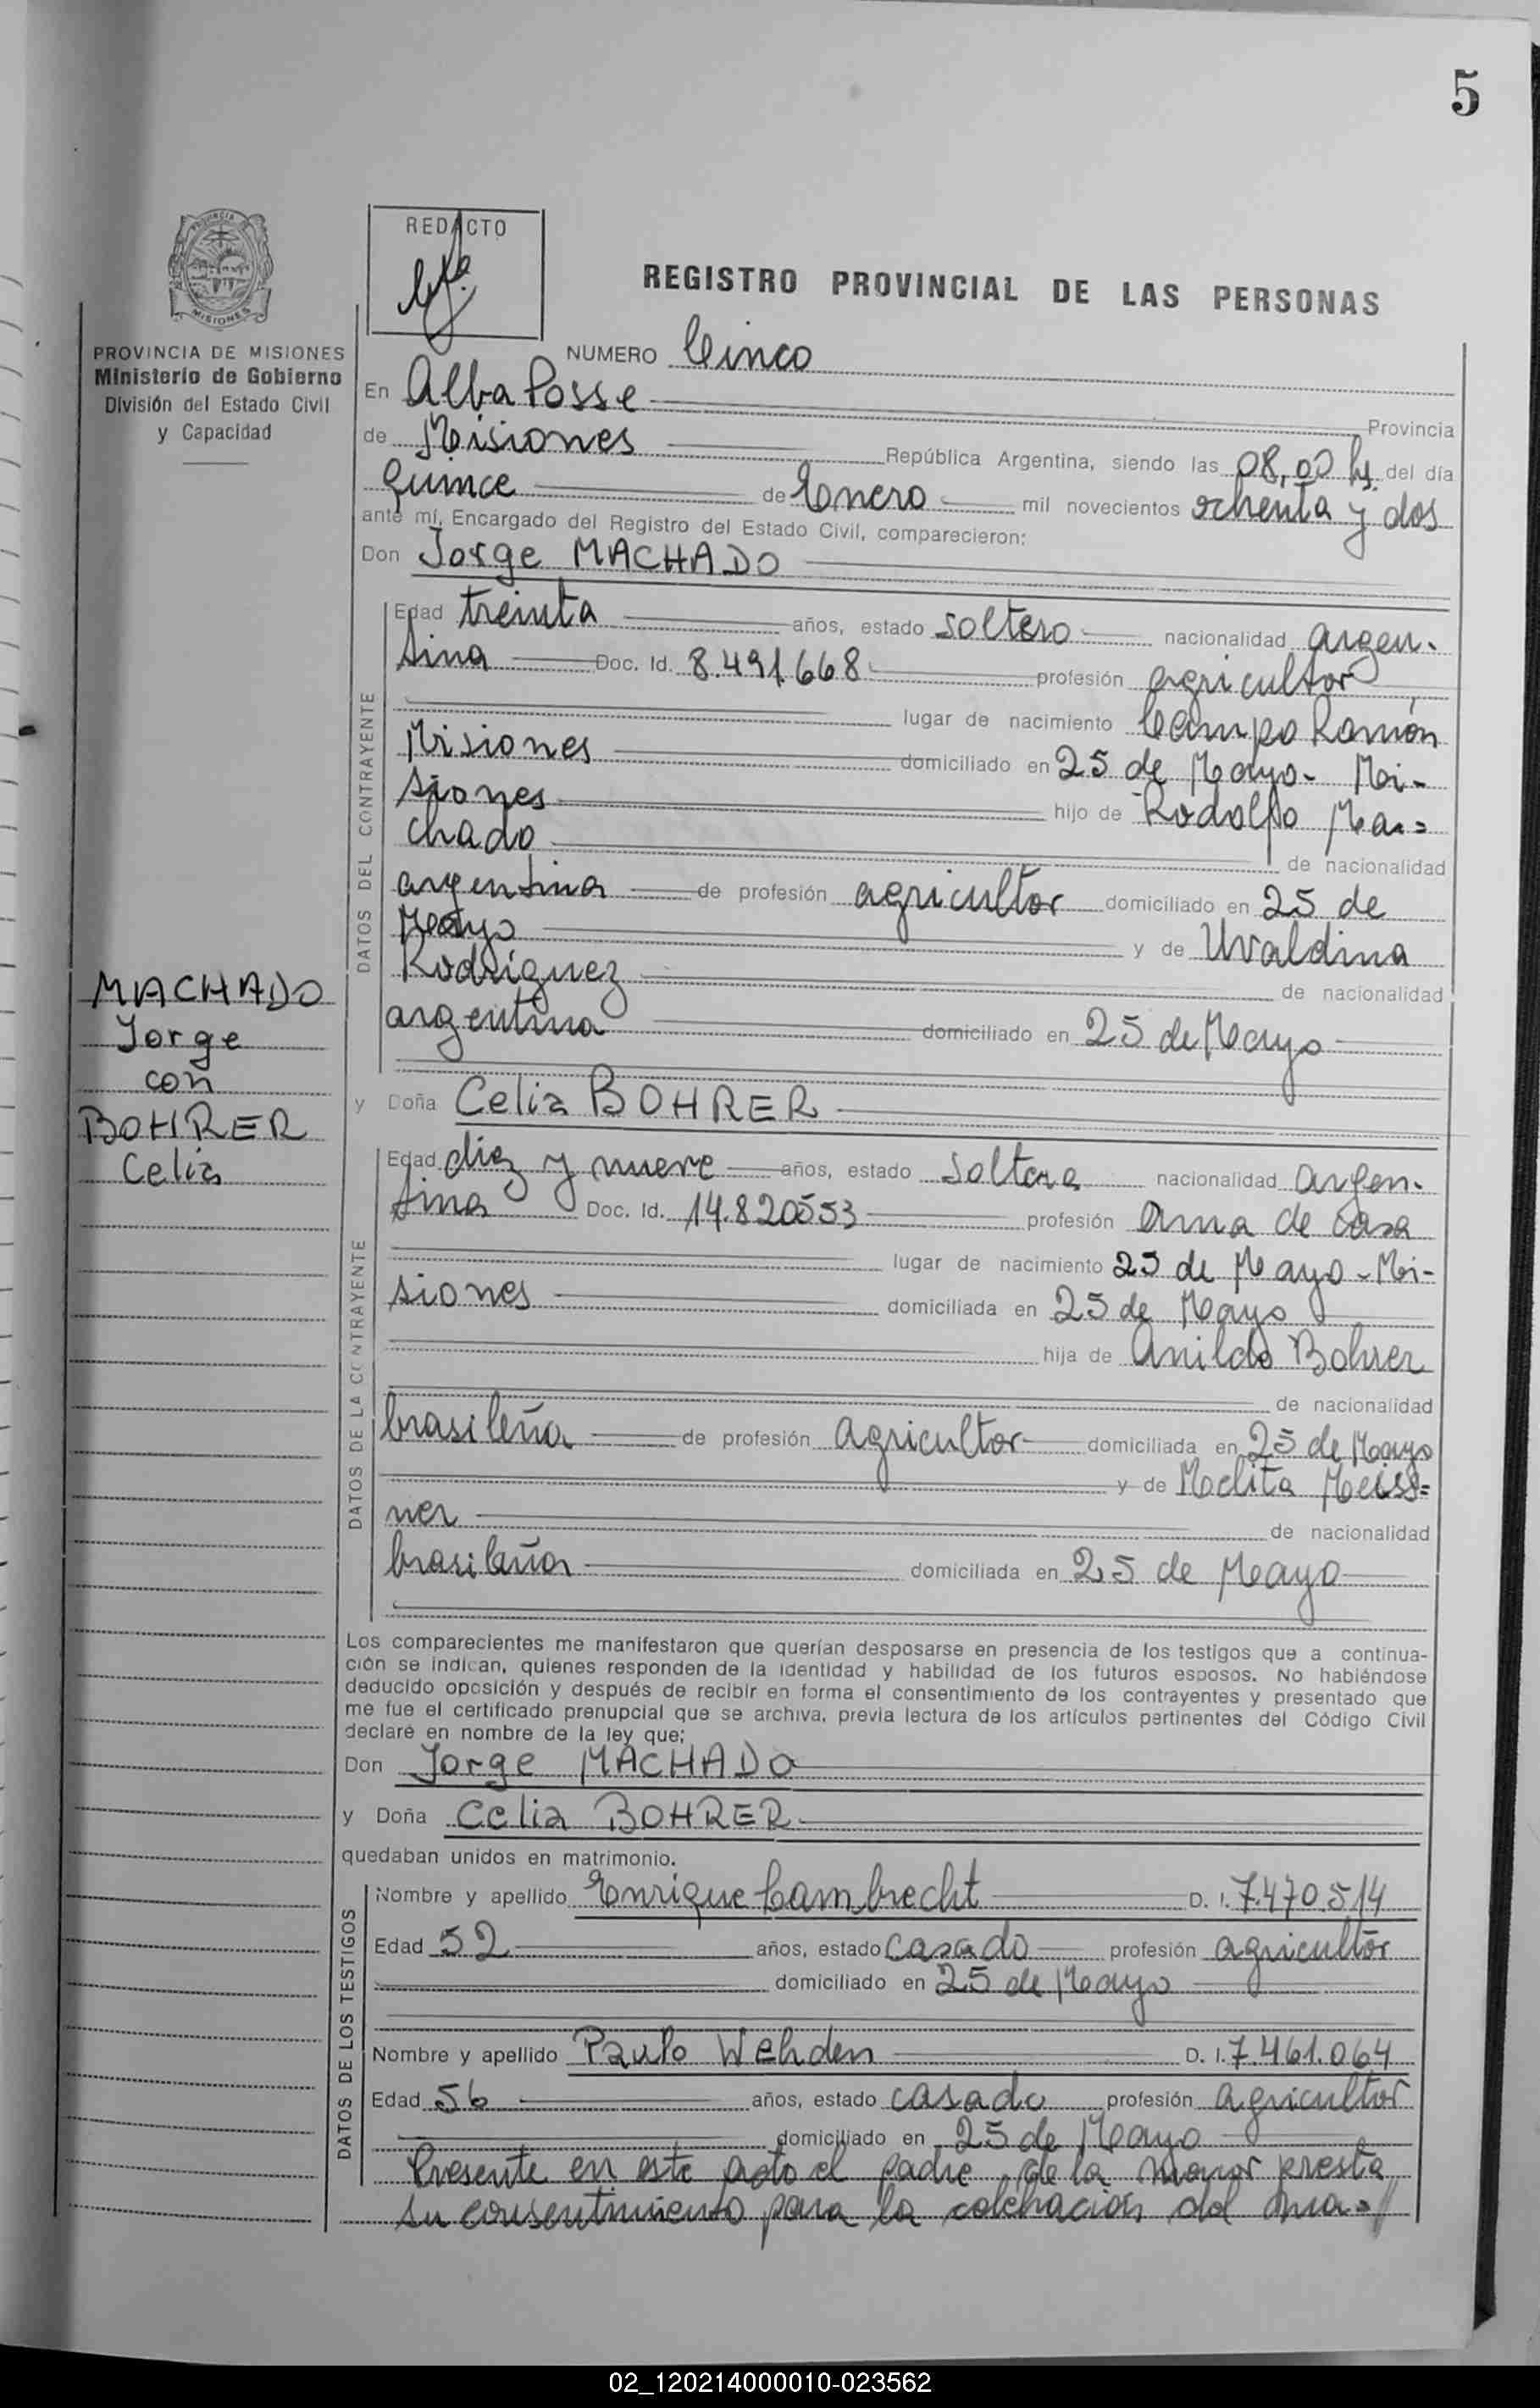 5
PROVINCIA
MISIONES
REDACTO
REGISTRO PROVINCIAL DE LAS PERSONAS
PROVINCIA DE MISIONES
Ministerio de Gobierno
División del Estado Civil
y Capacidad
NUMERO Cinco
En Alba Posse
Provincia
de Misiones República Argentina, siendo las 08,00 hs. del día
quince de Enero mil novecientos ochenta y dos
ante mí, Encargado del Registro del Estado Civil, comparecieron:
Don Jorge MACHADO
DATOS DEL CONTRAYENTE
Edad treinta años, estado soltero nacionalidad argen-
tina Doc. Id. 8.491.668 profesión agricultor
lugar de nacimiento Campo Ramón
Misiones domiciliado en 25 de Mayo - Mi-
siones hijo de Rodolfo Ma=
chado de nacionalidad
argentina de profesión agricultor domiciliado en 25 de
Mayo y de Uvaldina
Rodríguez de nacionalidad
argentina domiciliado en 25 de Mayo
MACHADO
Jorge
con
BOHRER
Celia
y Doña Celia BOHRER
DATOS DE LA CONTRAYENTE
Edad diez y nueve años, estado soltera nacionalidad argen-
tina Doc. Id. 14.820553 profesión ama de casa
lugar de nacimiento 25 de Mayo - Mi-
siones domiciliada en 25 de Mayo
hija de Anildo Bohrer
de nacionalidad
brasileña de profesión agricultor domiciliada en 25 de Mayo
y de Melita Meiss=
ner de nacionalidad
brasileña domiciliada en 25 de Mayo
Los comparecientes me manifestaron que querían desposarse en presencia de los testigos que a continua-
ción se indican, quienes responden de la identidad y habilidad de los futuros esposos. No habiéndose
deducido oposición y después de recibir en forma el consentimiento de los contrayentes y presentado que
me fue el certificado prenupcial que se archiva, previa lectura de los artículos pertinentes del Código Civil
declaré en nombre de la ley que;
Don Jorge MACHADO
y Doña Celia BOHRER
quedaban unidos en matrimonio.
DATOS DE LOS TESTIGOS
Nombre y apellido Enrique Lambrecht D. I. 7.470.514
Edad 52 años, estado casado profesión agricultor
domiciliado en 25 de Mayo
Nombre y apellido Paulo Wehden D. I. 7.461.064
Edad 56 años, estado casado profesión agricultor
domiciliado en 25 de Mayo
Presente en este acto el padre de la menor presta
su consentimiento para la celebración del ma=//
02_120214000010-023562